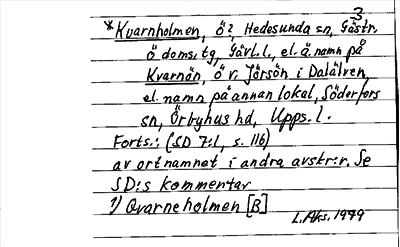 3
*Kvarnholmen, ö?, Hedesunda sn, Gästr.
ö doms:tg, Gävl.l., el. ä. namn på
Kvarnön, ö v. Jörsön i Dalälven,
el. namn på annan lokal, Söderfors
sn, Örbyhus hd, Upps. l.
Forts.: (SD 7:1, s. 116)
av ortnamnet i andra avskr:r. Se
SD:s kommentar
1) Qvarneholmen [B]
L. Aks. 1979